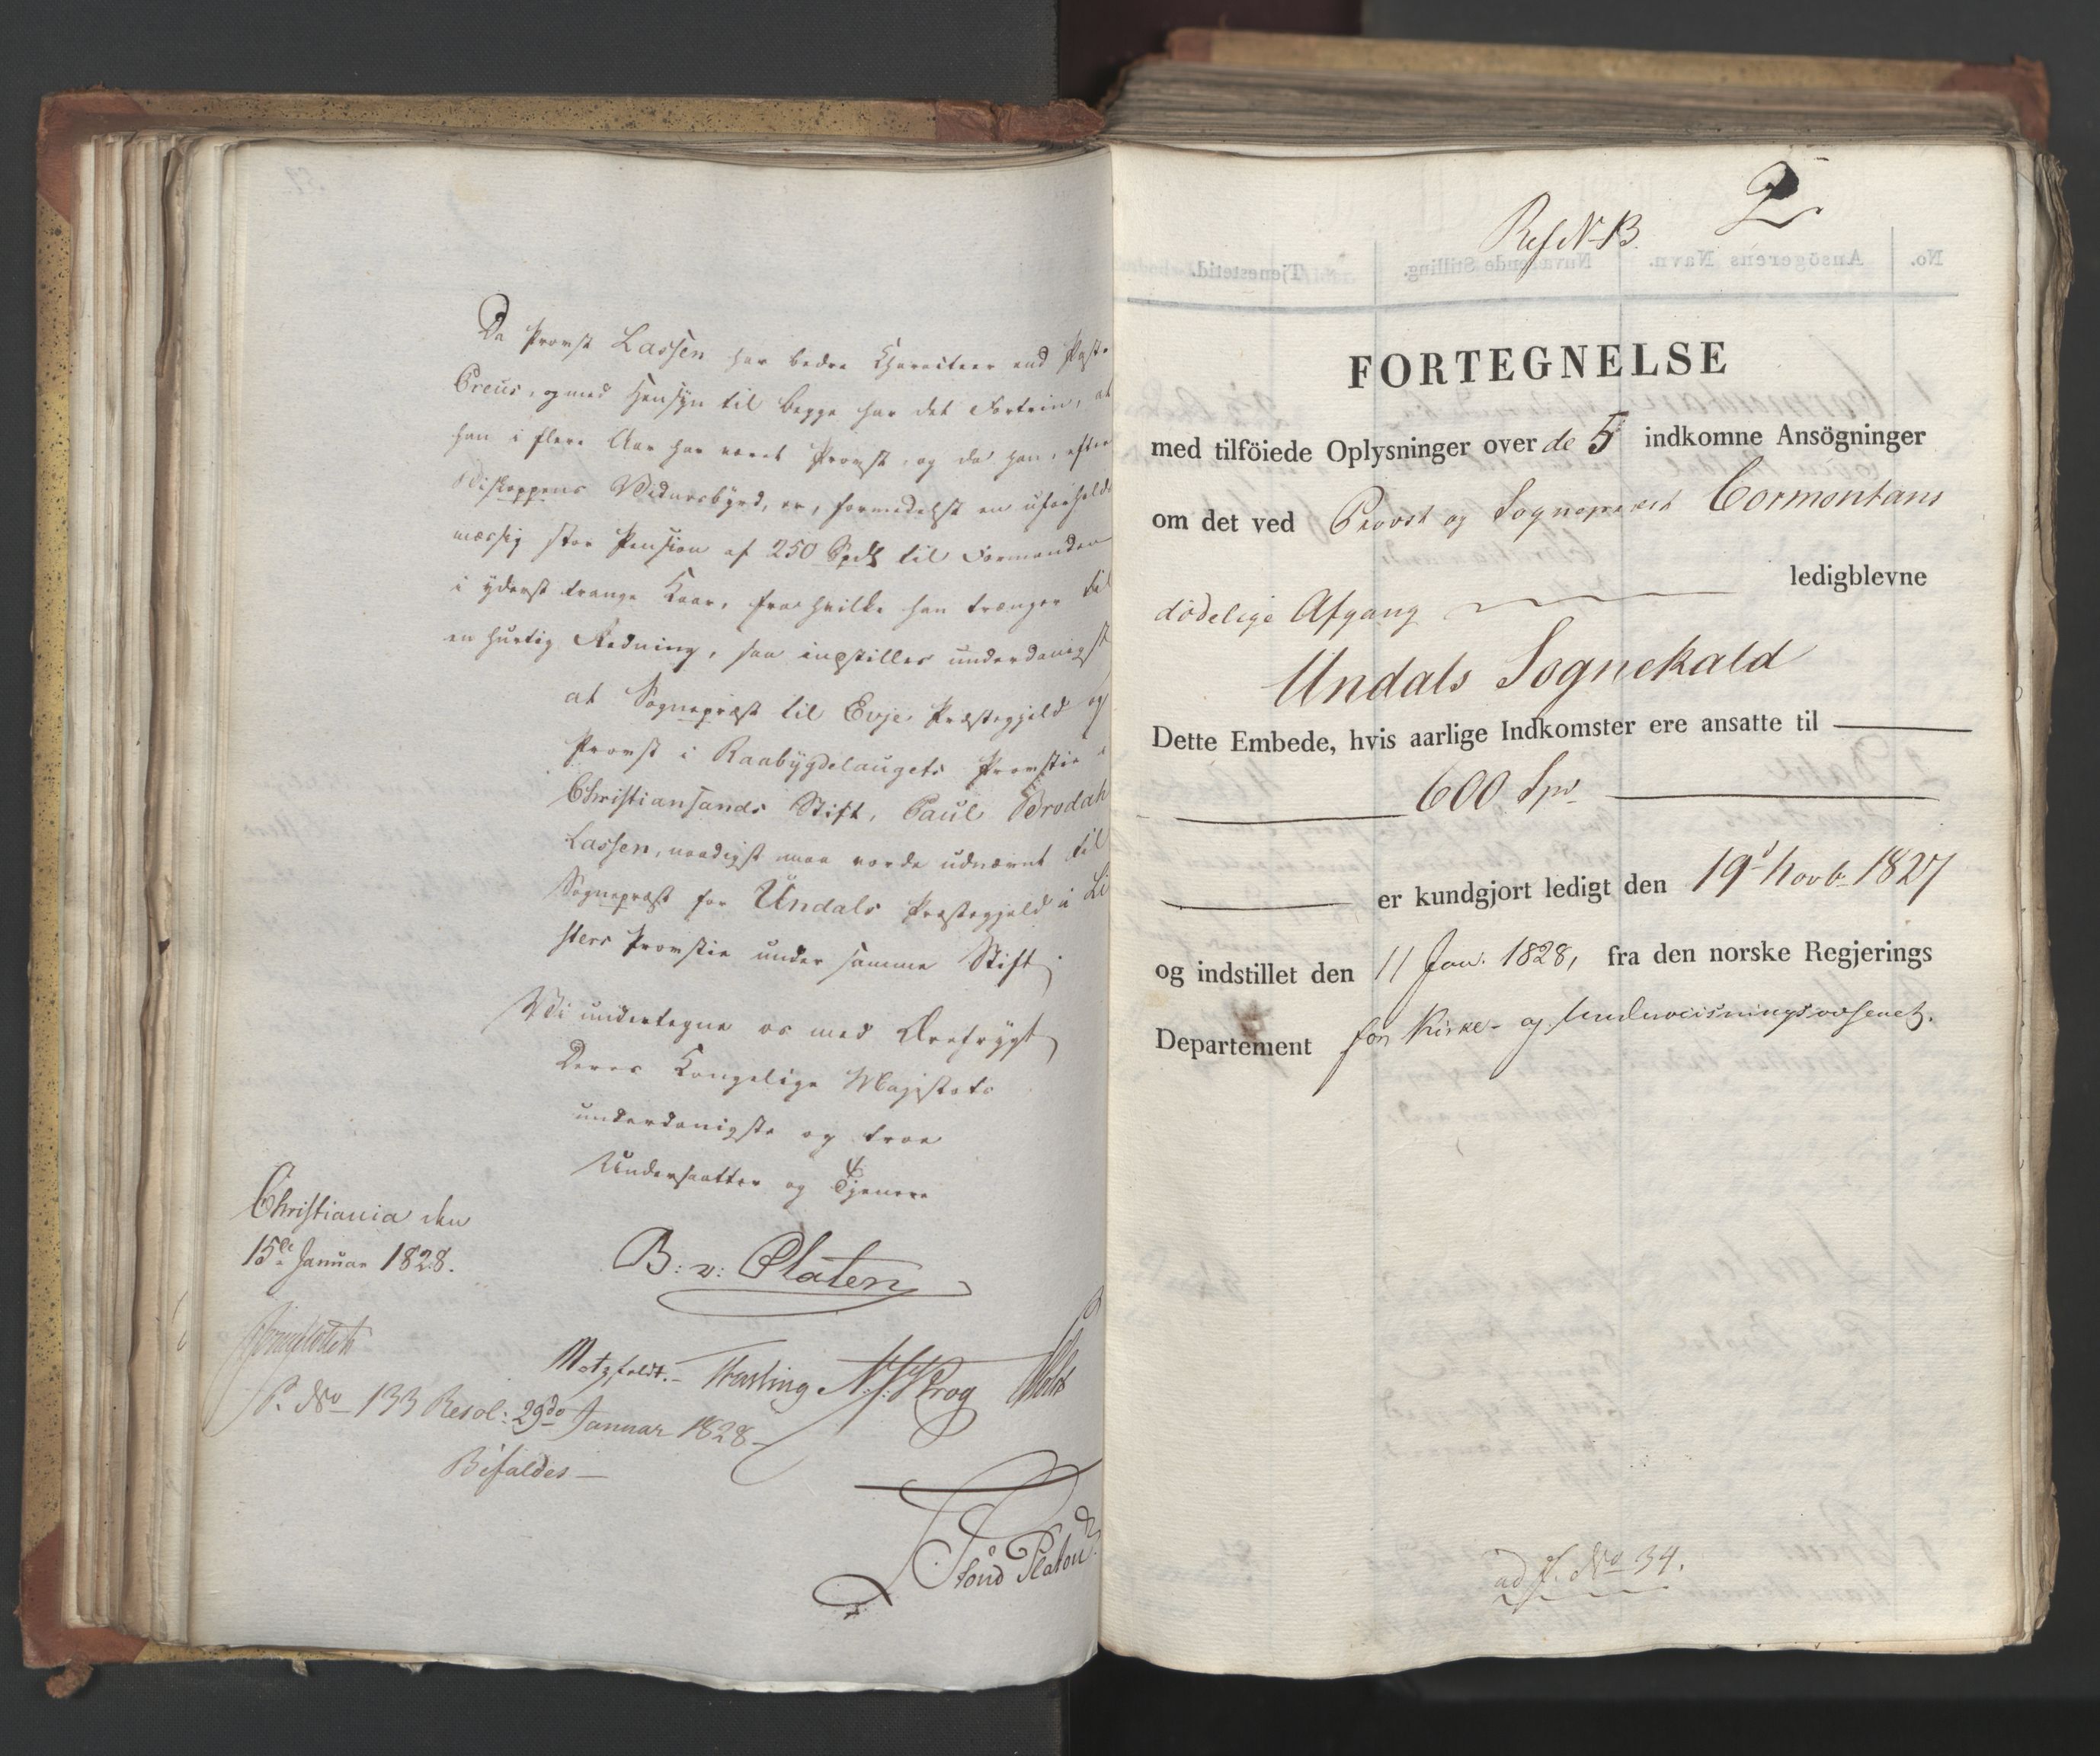 Da Provst Lassen har bedre Charaiteer end Præst
Preus, og med Hensyn til begge har det Fortrin, at
han i flere Aar har været Provst, og da han, efter
Biskoppens Vidnesbyrd, er, formedelst en uforholds
mæssig stor Pension af 250 Spd til Formanden
i yderst trange Kaar, fra hvilke han trænger til
en hurtig Redning, saa indstilles underdanigst
at Sognepræst til Evje Præstegjeld og
Provst i Raabygdelaugets Provstie i
Christiansands Stift, Paul Brodah
Lassen, naadigst maa vorde udnævnt til
Sognepræst for Undals Præstegjeld i Li
sters Provstie under samme Stift.
Vi undertegne os med Ærefrygt
Deres Kongelige Majestets
underdanigste og troe
Undersaatter og Tjenere
Christiania den
15de Januar 1828.
B: v: Platen
Motzfeldt. Fasting N. J. Krog
P. No 133 Resol: 29de Januar 1828 –
Bifaldes –
Platou
2
Ref N 13.
No.
Ansögerens Navn.
Nuværende Stilling.
Tjenestetid.
FORTEGNELSE
med tilföiede Oplysninger over de 5 indkomne Ansögninger
om det ved Provst og Sognepræst Cormontans
dødelige Afgang ledigblevne
Undals Sognekald
Dette Embede, hvis aarlige Indkomster ere ansatte til
600 Spd
er kundgjort ledigt den 19d Novb 1827
og indstillet den 11 Jan. 1828, fra den norske Regjerings
Departement for Kirke- og Underviisningsvæsenet.
ad P. No 34.